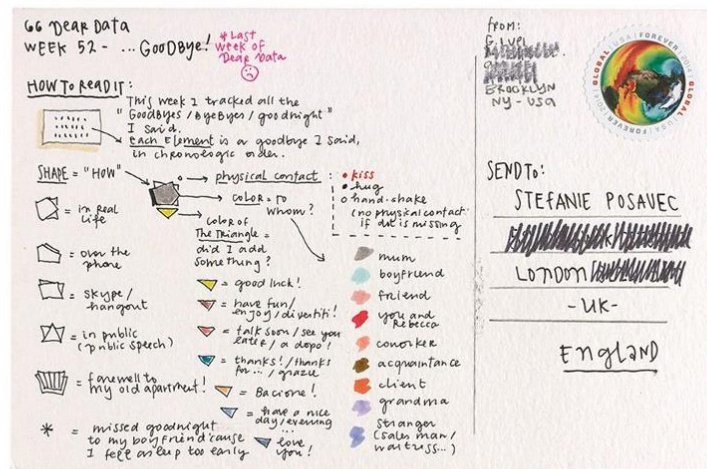 GG DEAR DATA
WEEK 52 - ... GOODBYE!
* Last week of Dear Data
HOW TO READ IT:
This week I tracked all the
"GOODBYES / BYEBYES / goodnight"
I said.
each element is a goodbye I said,
in chronologic order.
SHAPE = "HOW"
= in real life
= over the phone
= skype / hangout
= in public (public speech)
= farewell to my old apartment!
* = missed goodnight to my boyfriend 'cause I fell asleep too early
physical contact:
• kiss
• hug
o hand-shake
(no physical contact if dot is missing
COLOR = TO WHOM?
COLOR OF THE TRIANGLE = did I add something?
= good luck!
= have fun / enjoy / divertiti!
= talk soon / see you later / a dopo!
= thanks! / thanks for... / grazie
= Bacione!
= have a nice day / evening ...
= love you!
mum
boyfriend
friend
you and Rebecca
coworker
acquaintance
client
grandma
stranger (sales man / waitress...)
FROM:
G. LUPI
BROOKLYN
NY - USA
GLOBAL USA FOREVER
SEND TO:
STEFANIE POSAVEC
LONDON
- UK -
ENGLAND